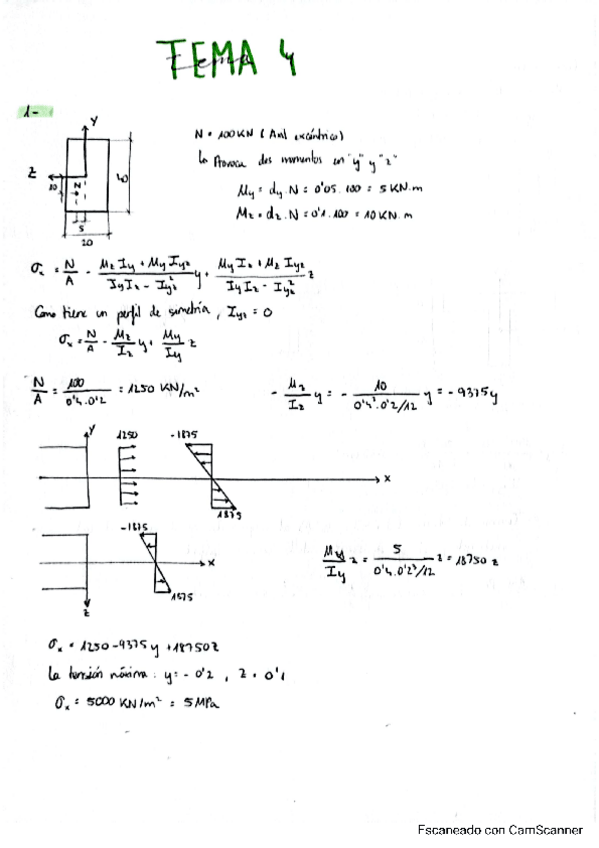 TEMA 4
Tema
1-
Y
N = 100KN (Axil excéntrico)
Z
40
10
N
Lo Provoca dos momentos en "y" y "z"
My = dy.N = 0'05.100 = 5KN.m
5
Mz = dz.N = 0'1.100 = 10KN.m
20
σx = N/A - (Mz Iy + My Iyz)/(Iy Iz - Iyz²) y + (My Iz + Mz Iyz)/(Iy Iz - Iyz²) z
Como tiene un perfil de simetría, Iyz = 0
σx = N/A - Mz/Iz y + My/Iy z
N/A = 100/(0'4.0'2) = 1250 KN/m²
- Mz/Iz y = - 10/(0'4³.0'2/12) y = - 9375y
Y
1250
-1875
x
1875
-1875
x
My/Iy z = 5/(0'4.0'2³/12) z = 18750 z
1875
z
σx = 1250-9375y+18750z
La tensión máxima: y = -0'2, z = 0'1
σx = 5000 KN/m² = 5MPa
Escaneado con CamScanner